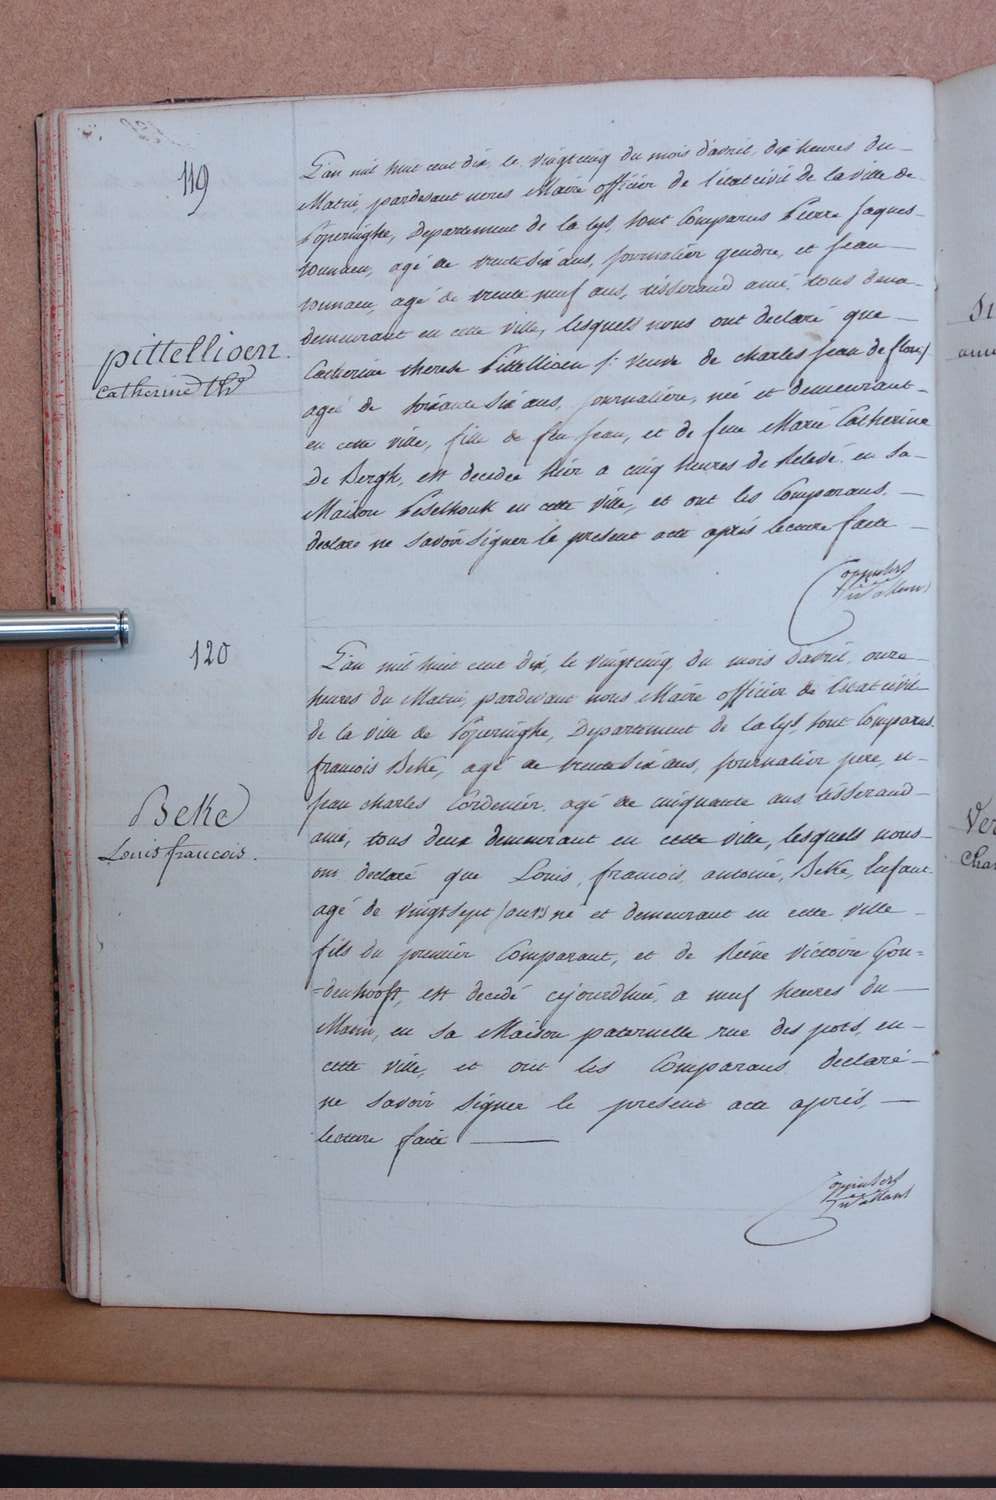 119
L'an mil huit cent dix, le vingtcinq du mois d'avril, dix heures du
Matin, pardevant nous Maire officier de l'état civil de la ville de
Poperinghe, Departement de la lys, sont Comparus Pierre Jaques
agé de trente six ans, journalier gendre, et jean
agé de trente neuf ans, tisserand ami, tous deux
demeurant en cette ville, lesquels nous ont declaré que
pittellioen.
Catherine therese Pittellioen veuve de charles jean de
Catherine thse
agée de soixante six ans, journaliere, née et demeurant
en cette ville, fille de feu jean, et de feue Marie Catherine
de Bergh, est decedée hier a cinq heures de relevé en sa
Maison Peselhouk en cette ville, et ont les Comparans,
declare ne savoir signer le present acte aprés lecture faite
120
L'an mil huit cent dix, le vingtcinq du mois d'avril, onze
heures du Matin, pardevant nous Maire officier de l'état civil
de la ville de Poperinghe, Departement de la lys, sont Comparus
francois Beke, agé de trente six ans, journalier pere, et
Beke
jean charles Cordenier, agé de cinquante ans tisserand
ami, tous deux demeurant en cette ville, lesquels nous
Louis francois.
ont declaré que Louis, francois, antoine, Beke, Enfant
agé de vingtsept jours né et demeurant en cette ville
fils du premier Comparant, et de Reine victoire Gou=
=denhooft, est decedé cejourdhui, a neuf heures du
Matin, en sa Maison paternelle rue des pots, en
cette ville, et ont les Comparans declaré
ne savoir signer le present acte aprés,
lecture faite